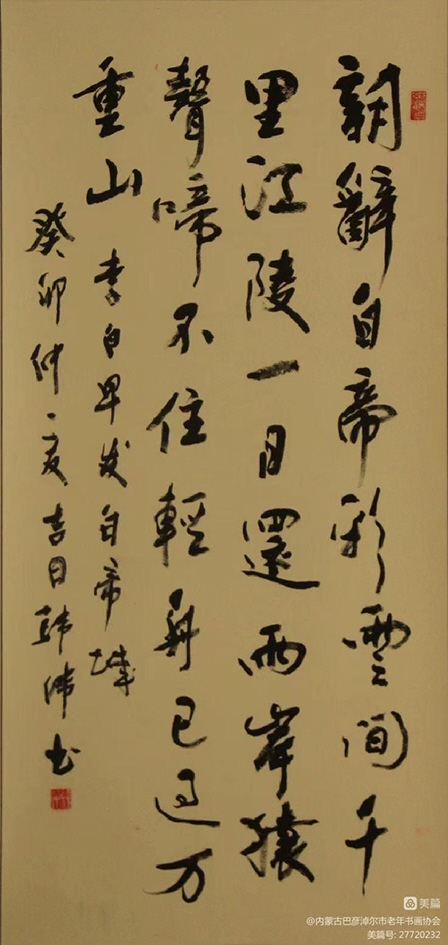 朝辭白帝彩雲間千
里江陵一日還兩岸猿
聲啼不住輕舟已過万
重山 李白早发白帝城
癸卯仲夏吉日韩伟书
美篇
@内蒙古巴彦淖尔市老年书画协会
美篇号: 27720232